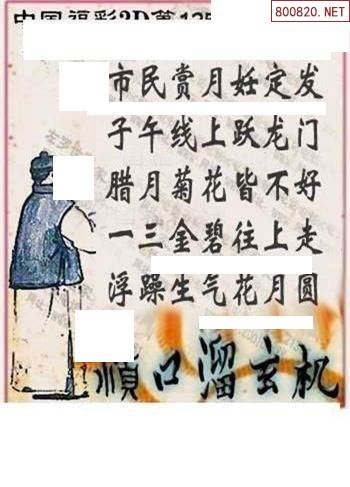 800820.NET
市民赏月妊定发
子午线上跃龙门
腊月菊花皆不好
一三金碧往上走
浮躁生气花月圆
顺口溜玄机